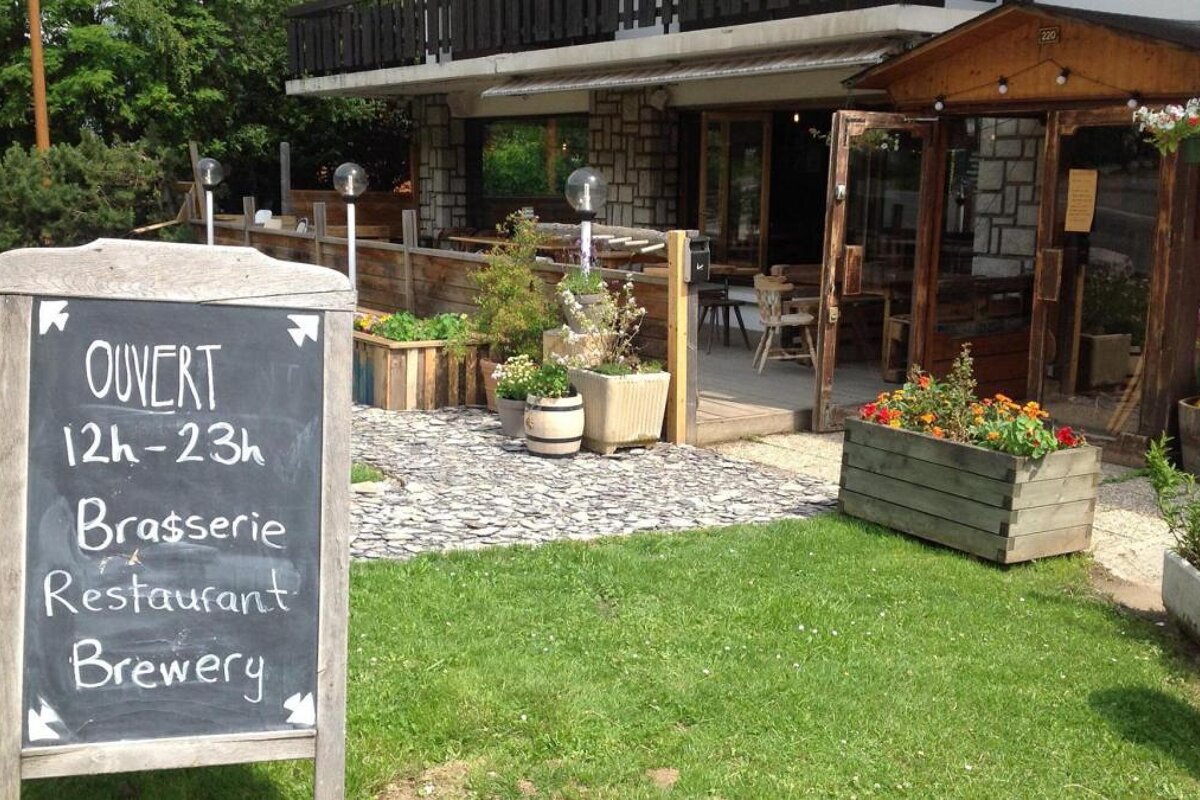 OUVERT
12h-23h
Brasserie
Restaurant
Brewery
220